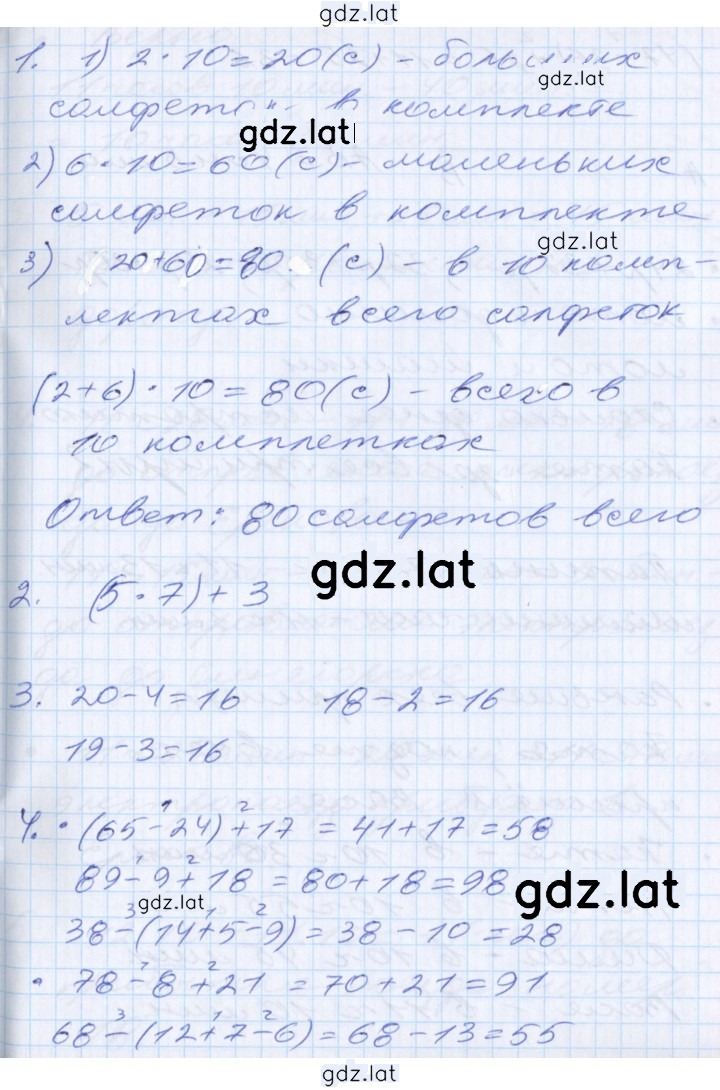 gdz.lat
1. 1) 2 · 10 = 20 (с) – больших
салфеток в комплекте
gdz.lat
2) 6 · 10 = 60 (с) – маленьких
салфеток в комплекте
3) 20+60=80 (с) – в 10 комп-
лектах всего салфеток
(2+6) · 10 = 80 (с) – всего в
10 комплетках
Ответ: 80 салфетов всего
gdz.lat
2. (5 · 7) + 3
3. 20-4=16 18-2=16
19-3=16
4. · (65 -¹ 24) +² 17 = 41+17 = 58
89 -¹ 9 +² 18 = 80+18=98
gdz.lat
gdz.lat
38 -³ (14 +¹ 5 -² 9) = 38 - 10 = 28
· 78 -¹ 8 +² 21 = 70+21 = 91
68 -³ (12 +¹ 7 -² 6) = 68 - 13 = 55
gdz.lat